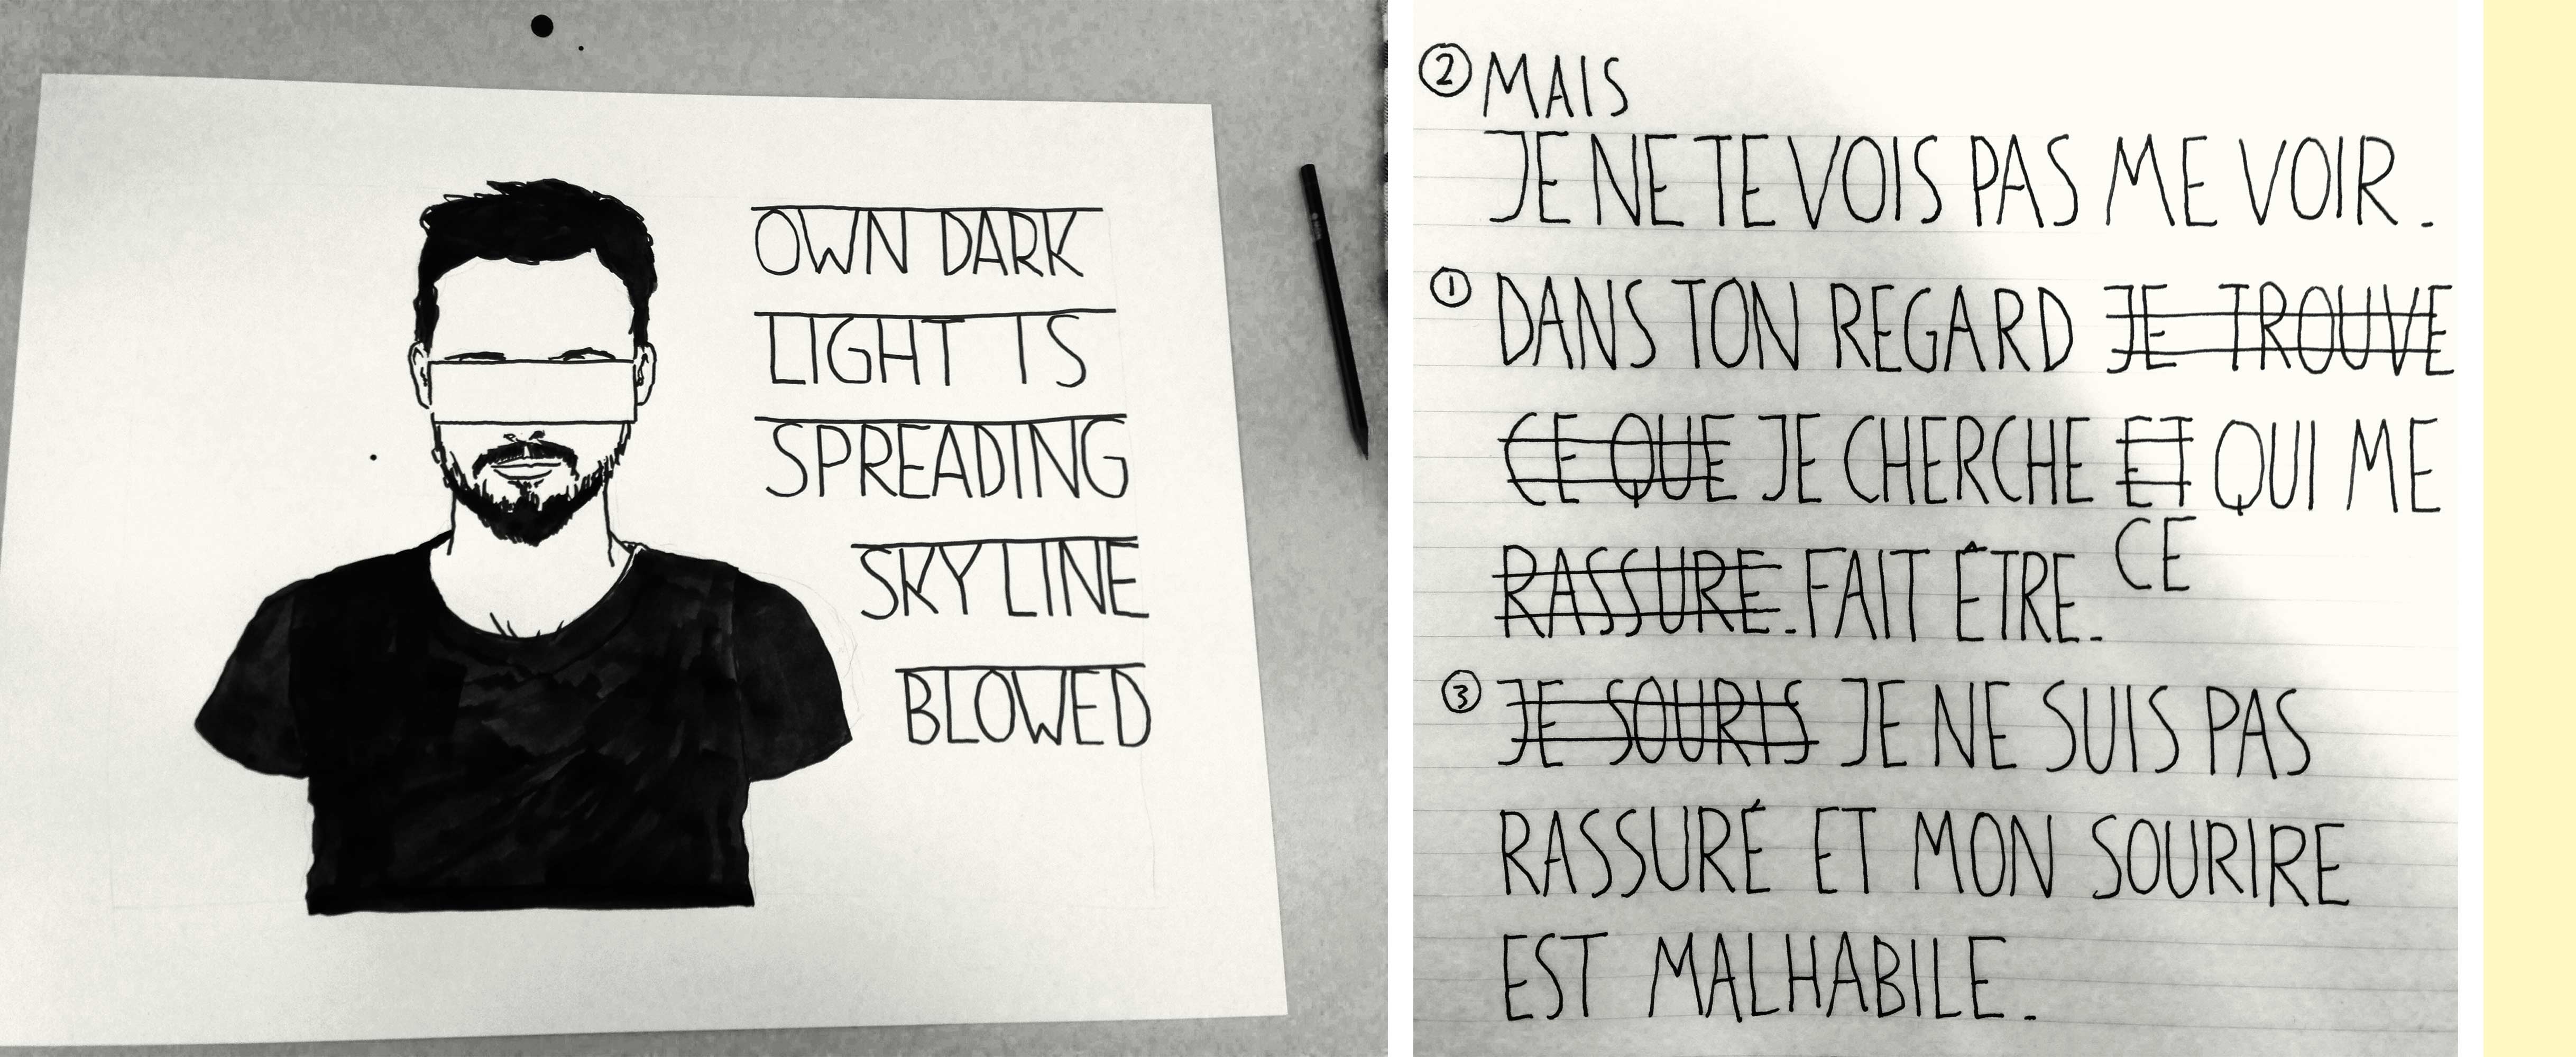 OWN DARK
LIGHT IS
SPREADING
SKYLINE
BLOWED
② MAIS
JE NE TE VOIS PAS ME VOIR.
① DANS TON REGARD JE TROUVE
CE QUE JE CHERCHE ET QUI ME
CE
RASSURE. FAIT ÊTRE.
③ JE SOURIS JE NE SUIS PAS
RASSURÉ ET MON SOURIRE
EST MALHABILE.